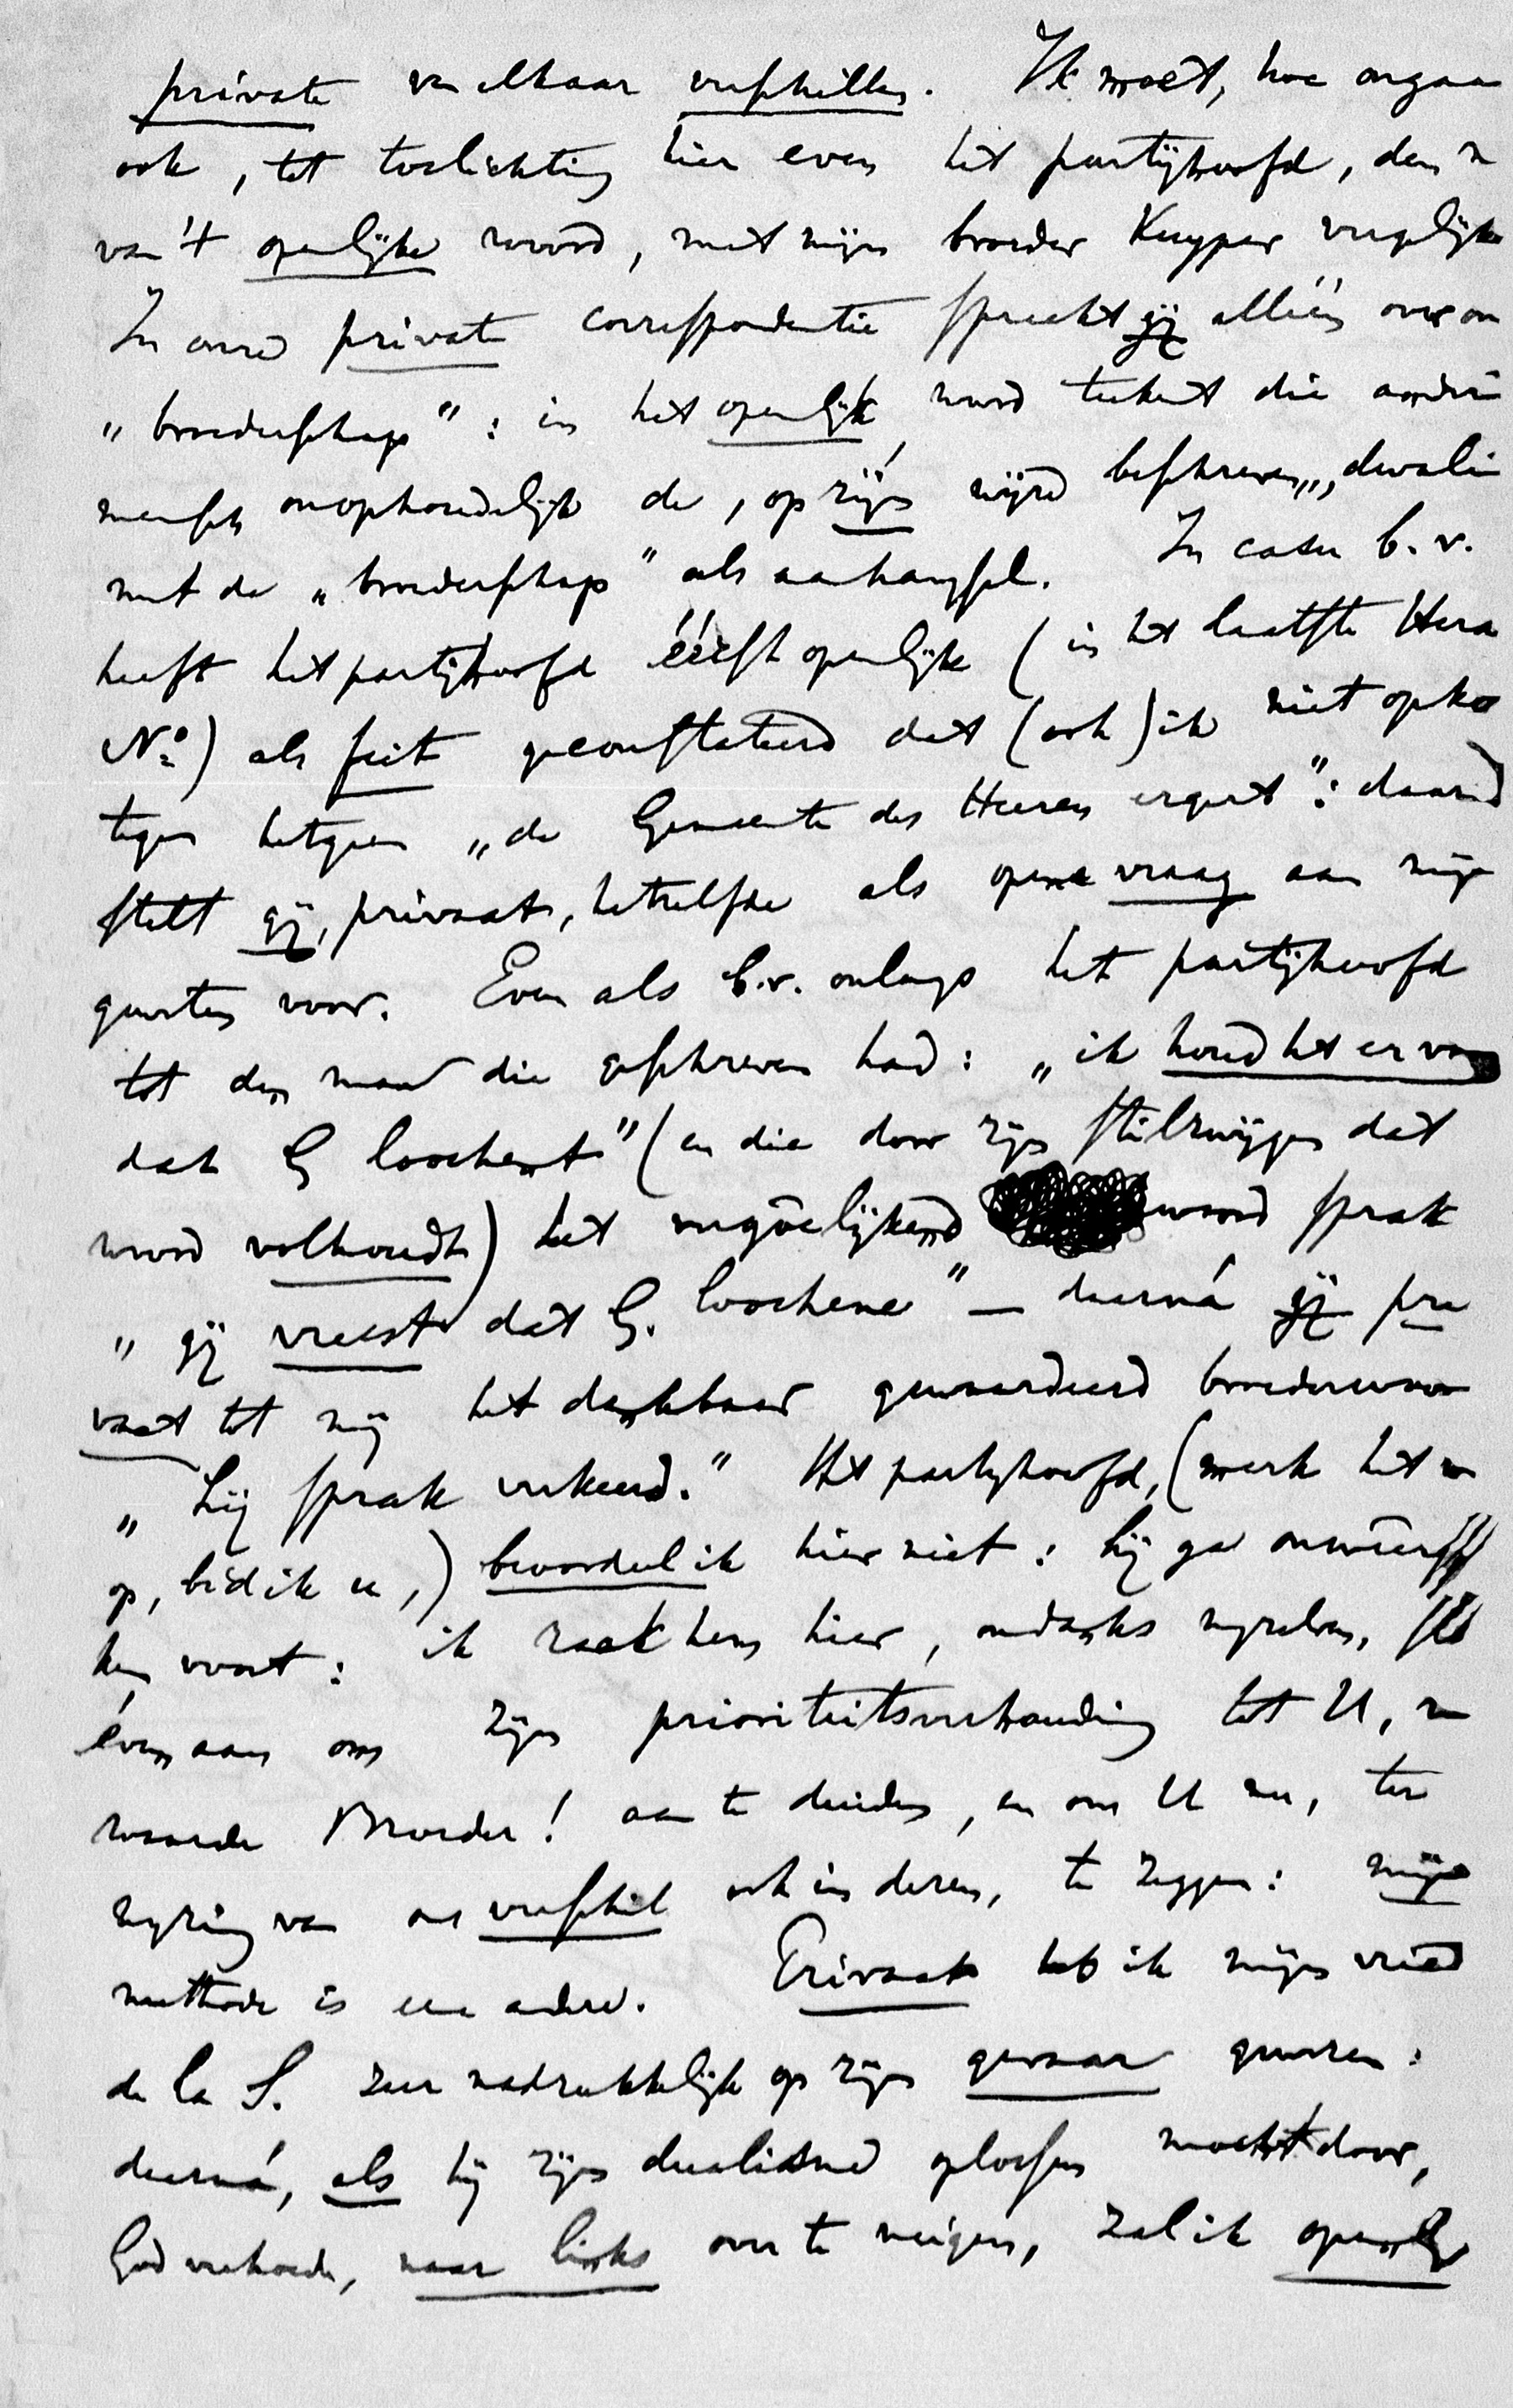 private van elkaar verschillen. Ik moet, hoe ongaa
ook, tot toelichting hier even het partijhoofd, den
van 't openlijke woord, met mijn broeder Kuyper vergelijke
In onze private correspondentie spreekt gij alléén over on
„broederschap": in het openlijk woord teekent die andere
mensch onophoudelijk de, op zijn wijze beschreven, „dwalin
met de „broederschap" als aanhangsel. In casu b.v.
heeft het partijhoofd éérst openlijk (in het laatste Hera
No) als feit geconstateerd dat (ook) ik niet opko
tegen hetgeen „de Gemeente des Heeren ergert": daarna
stelt gij, privaat, hetzelfde als open vraag aan mijn
geweten voor. Even als b.v. onlangs het partijhoofd
tot den man die geschreven had: „ik houd het er voor
dat G loochent" (en die door zijn stilzwijgen dat
woord volhoudt) het vergoêlijkend woord sprak
„gij vreest dat G. loochene" – daarná gij pri
vaat tot mij het dankbaar gewaardeerd broederwoor
„hij sprak verkeerd." Het partijhoofd, (merk het
op, bid ik u,) beoordeel ik hier niet: hij ga
hen voort: ik raak hem hier, ondanks mijzelven,
éven aan om zijn prioriteitsverhouding tot U,
waarde Broeder! aan te duiden, en om U nu, ter
wijzing van ons verschil ook in dezen, te zeggen: mijn
methode is eene andere. Privaat heb ik mijn vriend
de la S. zeer nadrukkelijk op zijn gevaar gewezen:
daarná, als hij zijn dualisme oplossen mocht door,
God verhoede, naar links over te neigen, zal ik openlij